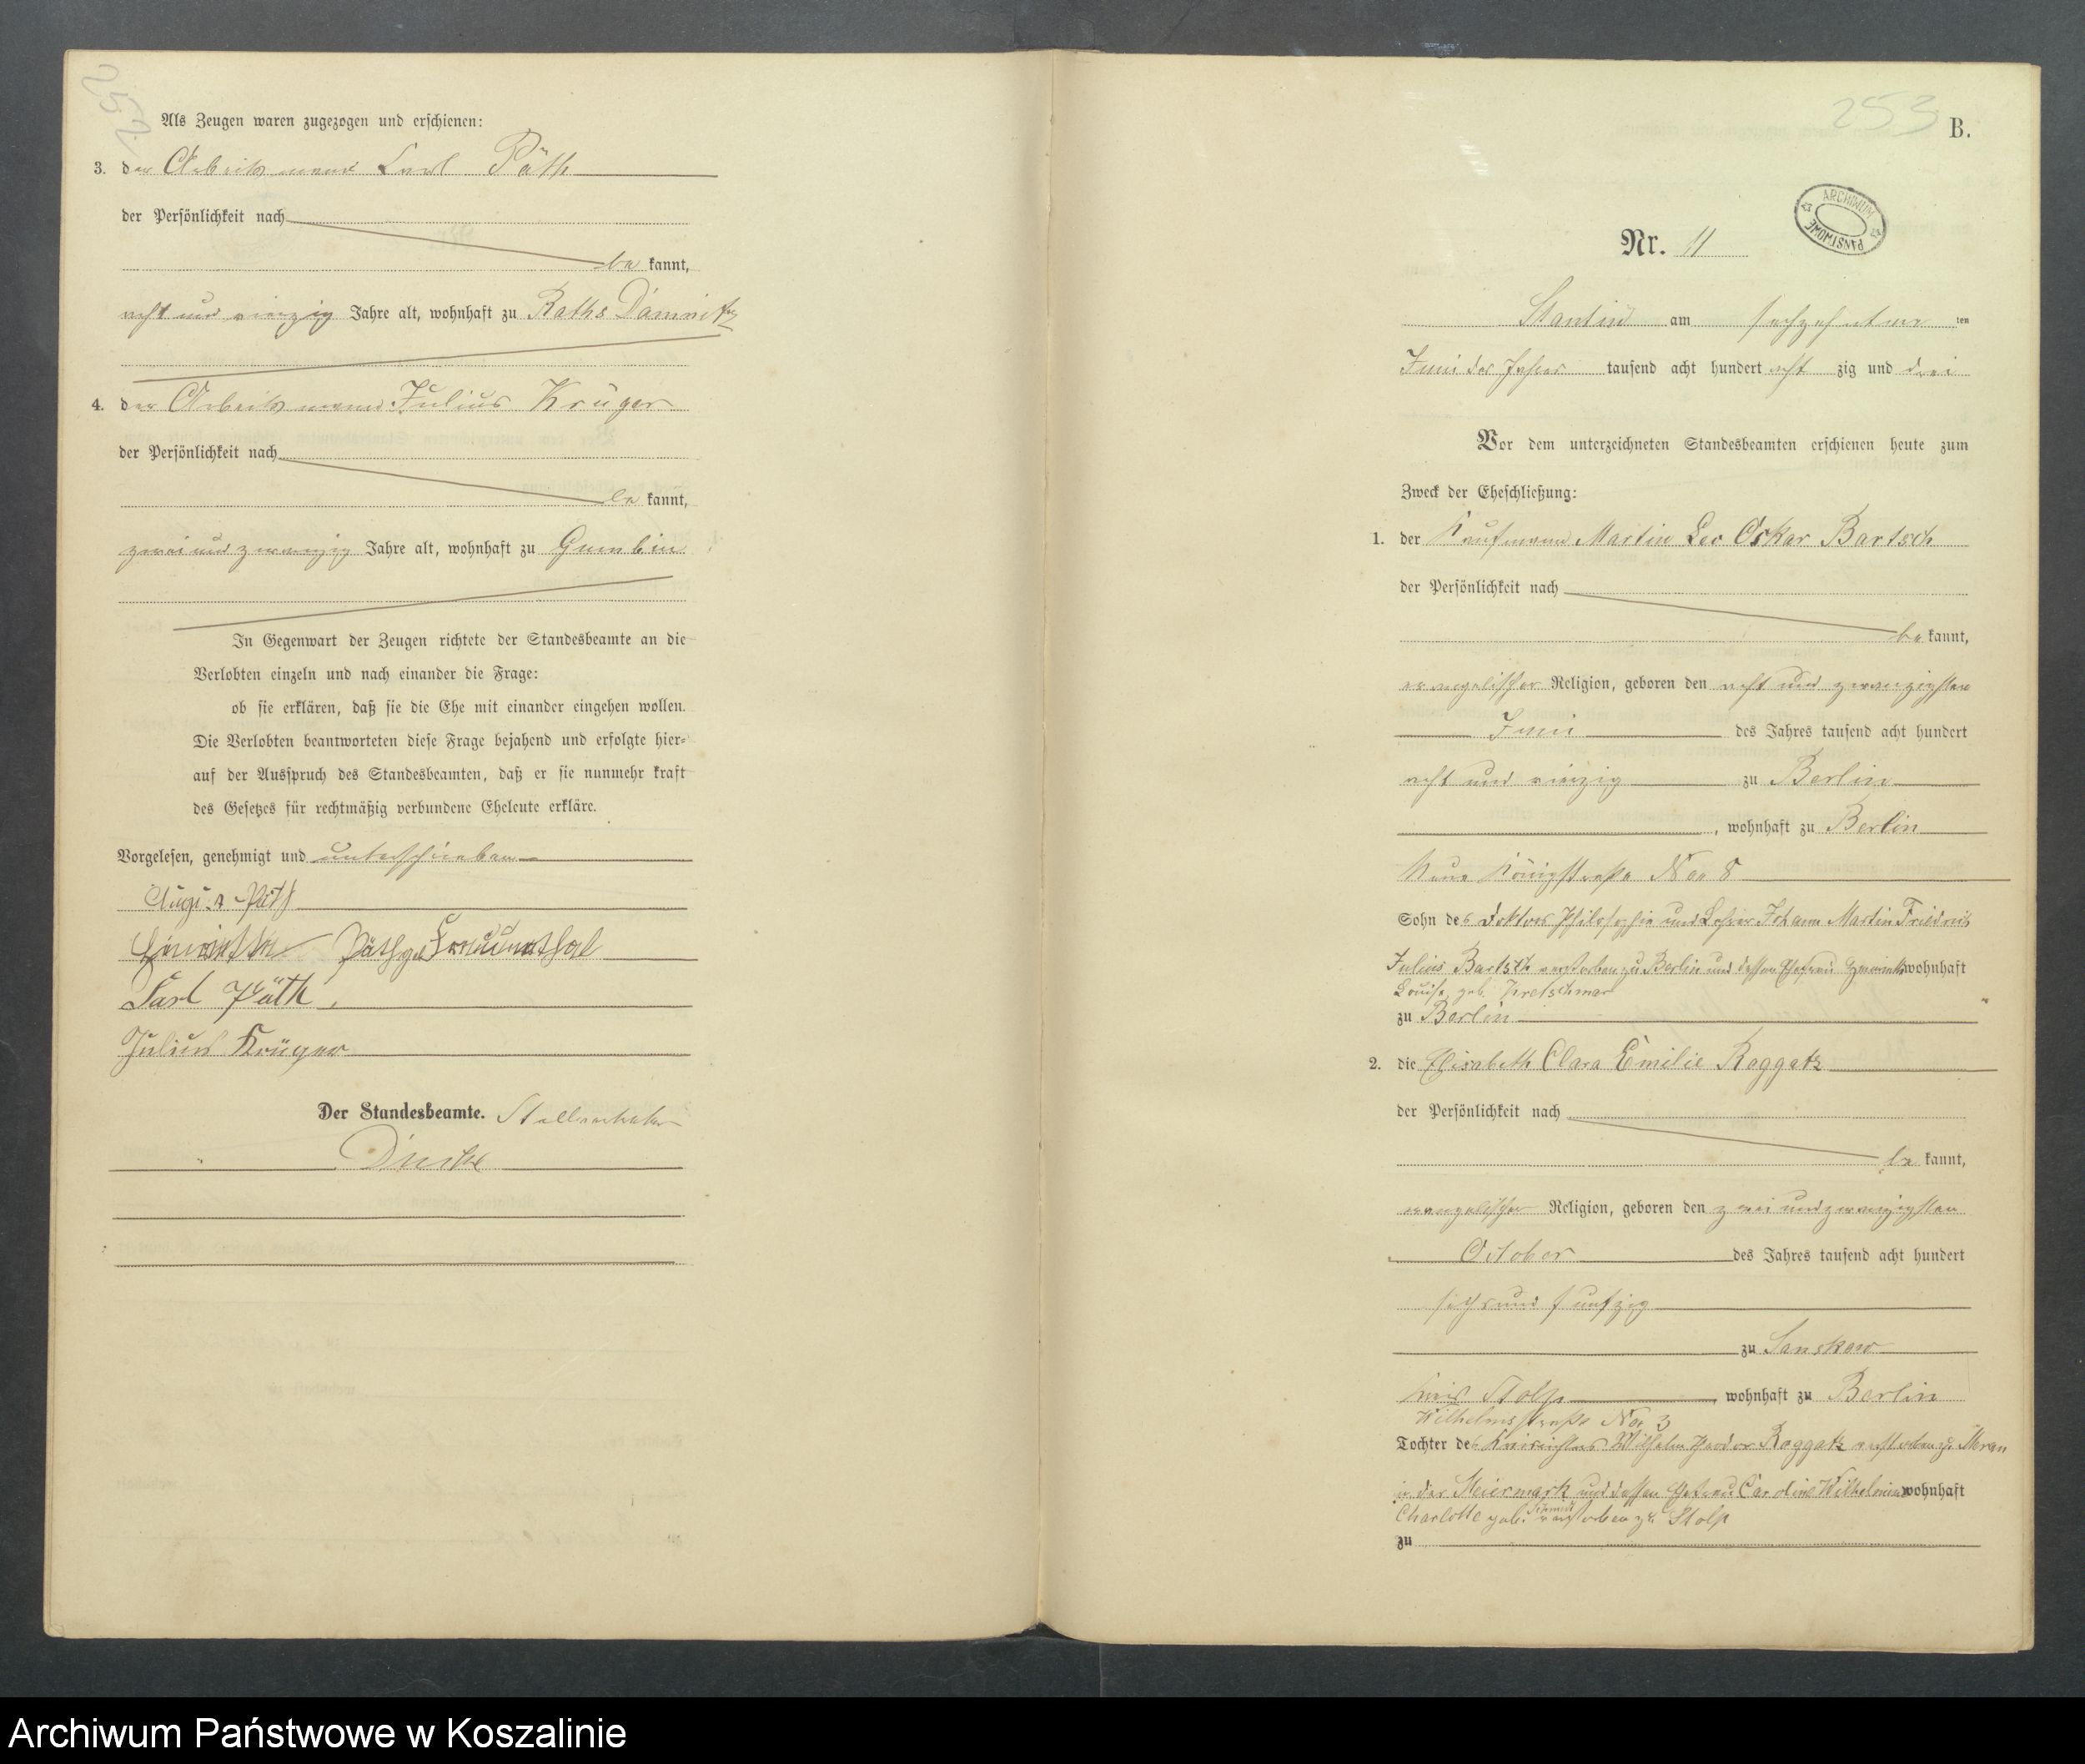 252
Als Zeugen waren zugezogen und erschienen:
3. der Arbeitsmann Carl Päth
der Persönlichkeit nach
be kannt,
acht und vierzig Jahre alt, wohnhaft zu Raths Damnitz
4. der Arbeitsmann Julius Krüger
der Persönlichkeit nach
be kannt,
zwei und zwanzig Jahre alt, wohnhaft zu Gumbin
In Gegenwart der Zeugen richtete der Standesbeamte an die
Verlobten einzeln und nach einander die Frage:
ob sie erklären, daß sie die Ehe mit einander eingehen wollen.
Die Verlobten beantworteten diese Frage bejahend und erfolgte hier-
auf der Ausspruch des Standesbeamten, daß er sie nunmehr kraft
des Gesetzes für rechtmäßig verbundene Eheleute erkläre.
Vorgelesen, genehmigt und unterschrieben
Päth
Päth geb
Carl Päth
Julius Krüger
Der Standesbeamte. Stellvertreter
253
B.
ARCHIWUM PAŃSTWOWE
Nr. 11
Stantin am sechszehnten ten
Juni des Jahres tausend acht hundert acht zig und drei
Vor dem unterzeichneten Standesbeamten erschienen heute zum
Zweck der Eheschließung:
1. der Kaufmann Martin Leo Oskar Bartsch
der Persönlichkeit nach
be kannt,
evangelischer Religion, geboren den acht und zwanzigsten
Juni des Jahres tausend acht hundert
acht und vierzig zu Berlin
, wohnhaft zu Berlin
Neue Königstraße No 8
Sohn des Doktors Philosophie und Lehrer Johann Martin Friedrich
Julius Bartsch verstorben zu Berlin und dessen Ehefrau Henriette wohnhaft
Louise geb. Kretschmar
zu Berlin
2. die Elisabeth Clara Emilie Roggatz
der Persönlichkeit nach
be kannt,
evangelischer Religion, geboren den zwei und zwanzigsten
October des Jahres tausend acht hundert
sechs und funfzig
zu Sanskow
Kreis Stolp, wohnhaft zu Berlin
Wilhelmsstraße No 3
Tochter des Kreisrichters Wilhelm Theodor Roggatz verstorben zu Meran
in der Steiermark und dessen Ehefrau Caroline Wilhelmine wohnhaft
Charlotte geb. Schmidt verstorben zu Stolp
zu
Archiwum Państwowe w Koszalinie